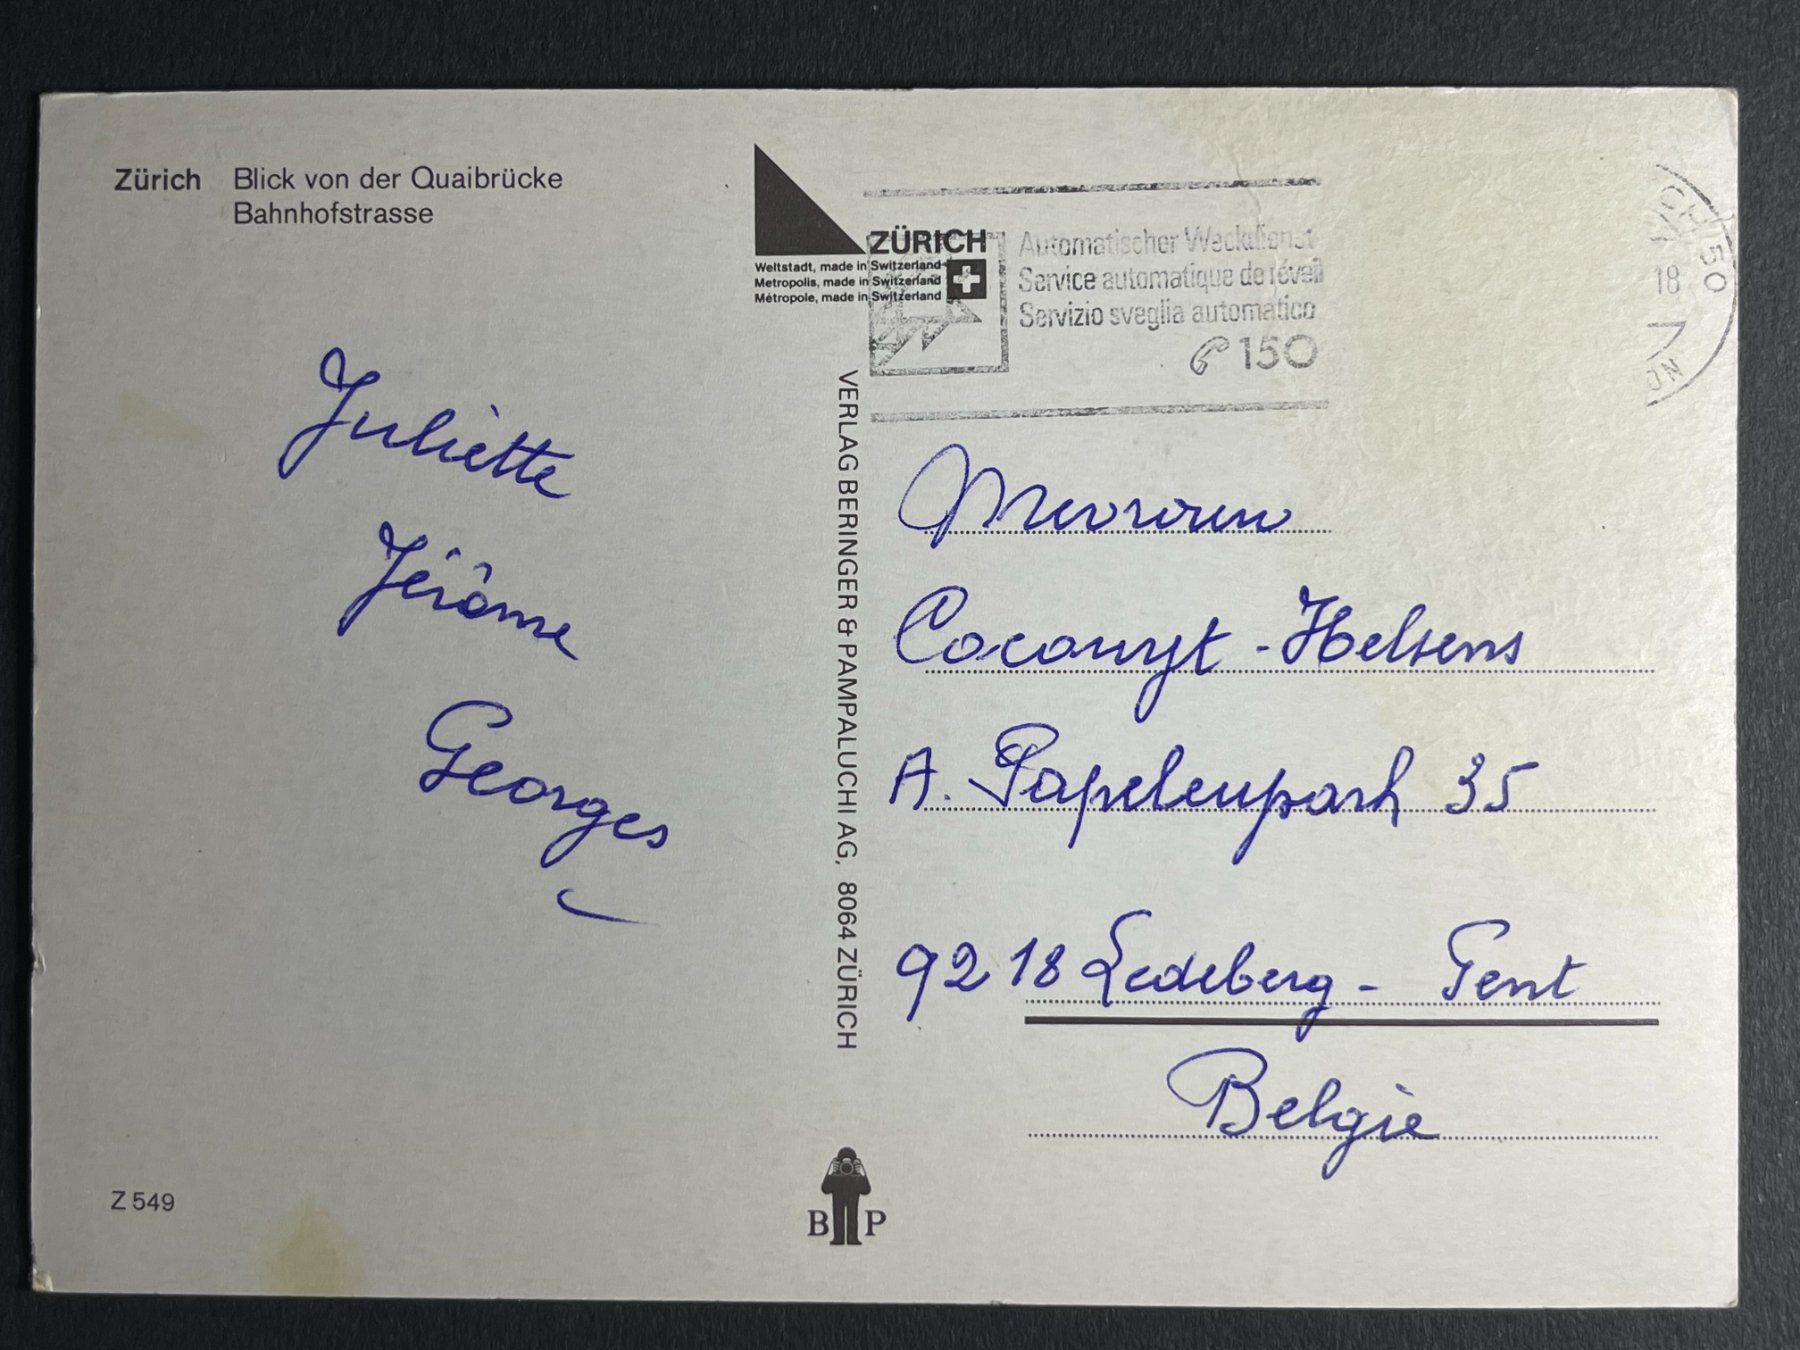 Zürich Blick von der Quaibrücke
Bahnhofstrasse
ZÜRICH
Weltstadt, made in Switzerland
Metropolis, made in Switzerland
Métropole, made in Switzerland
Automatischer Weckdienst
Service automatique de réveil
Servizio sveglia automatico
150
50
18
Juliette
Jérôme
Georges
VERLAG BERINGER & PAMPALUCHI AG, 8064 ZÜRICH
Mevrouw
Coconuyt - Helsens
A. Papelenpark 35
9218 Ledeberg - Gent
Belgie
Z 549
B P